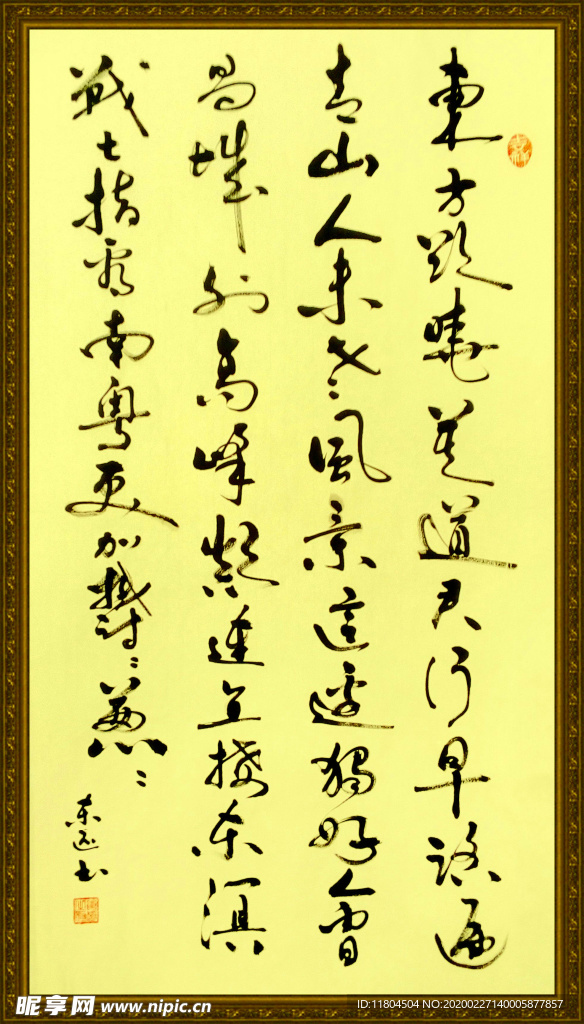 東方欲曉莫道君行早踏遍
青山人未老風景這邊獨好會
昌城外高峰顛連直接東溟
戰士指看南粵更加鬱〻蔥〻
东远书
昵享网 www.nipic.cn
ID:11804504 NO:20200227140005877857